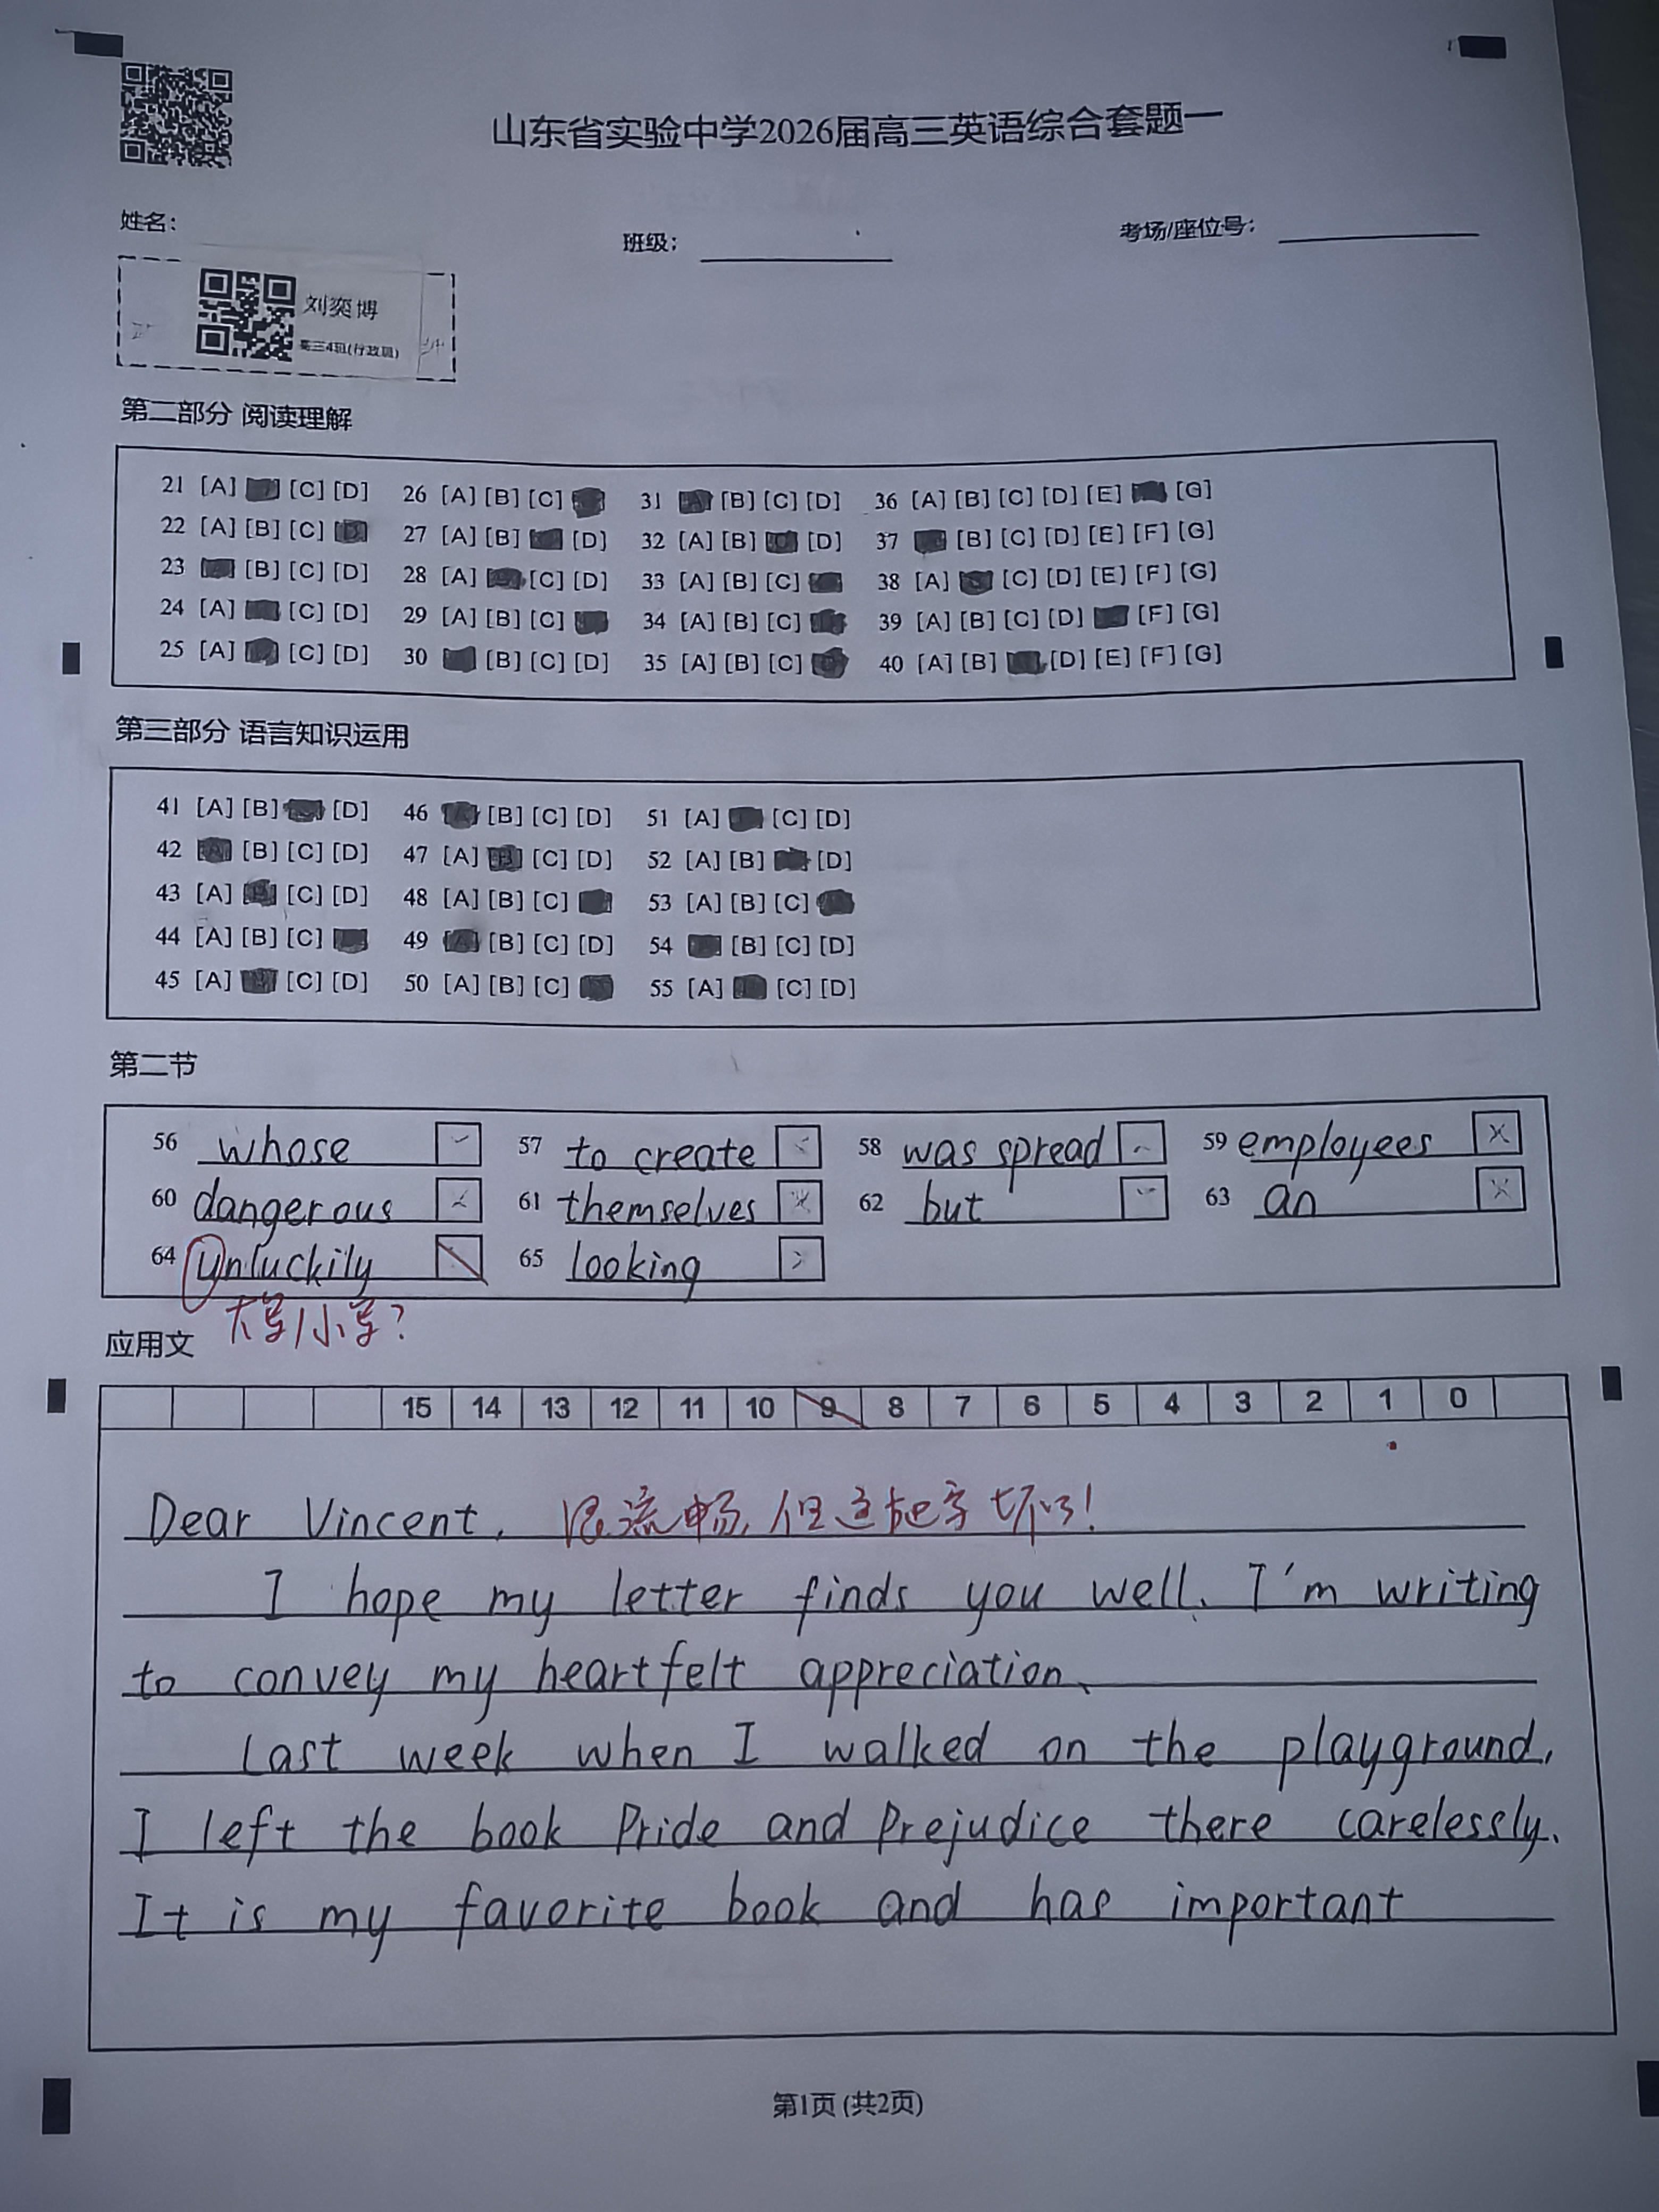 山东省实验中学2026届高三英语综合套题一
姓名:
班级:
考场/座位号:
刘奕博
高三4班(行政班)
第二部分 阅读理解
21 [A] [C] [D] 26 [A] [B] [C] 31 [B] [C] [D] 36 [A] [B] [C] [D] [E] [G]
22 [A] [B] [C] [D] 27 [A] [B] [D] 32 [A] [B] [C] [D] 37 [B] [C] [D] [E] [F] [G]
23 [B] [C] [D] 28 [A] [C] [D] 33 [A] [B] [C] 38 [A] [C] [D] [E] [F] [G]
24 [A] [C] [D] 29 [A] [B] [C] 34 [A] [B] [C] 39 [A] [B] [C] [D] [F] [G]
25 [A] [C] [D] 30 [B] [C] [D] 35 [A] [B] [C] 40 [A] [B] [D] [E] [F] [G]
第三部分 语言知识运用
41 [A] [B] [D] 46 [A] [B] [C] [D] 51 [A] [C] [D]
42 [A] [B] [C] [D] 47 [A] [B] [C] [D] 52 [A] [B] [D]
43 [A] [B] [C] [D] 48 [A] [B] [C] 53 [A] [B] [C]
44 [A] [B] [C] 49 [A] [B] [C] [D] 54 [B] [C] [D]
45 [A] [C] [D] 50 [A] [B] [C] 55 [A] [C] [D]
第二节
56 whose 57 to create 58 was spread 59 employees
60 dangerous 61 themselves 62 but 63 an
64 Unluckily 65 looking
大写/小写?
应用文
15 14 13 12 11 10 9 8 7 6 5 4 3 2 1 0
Dear Vincent, 很流畅,但这把字坏了!
I hope my letter finds you well. I'm writing
to convey my heartfelt appreciation.
Last week when I walked on the playground,
I left the book Pride and Prejudice there carelessly.
It is my favorite book and has important
第1页 (共2页)